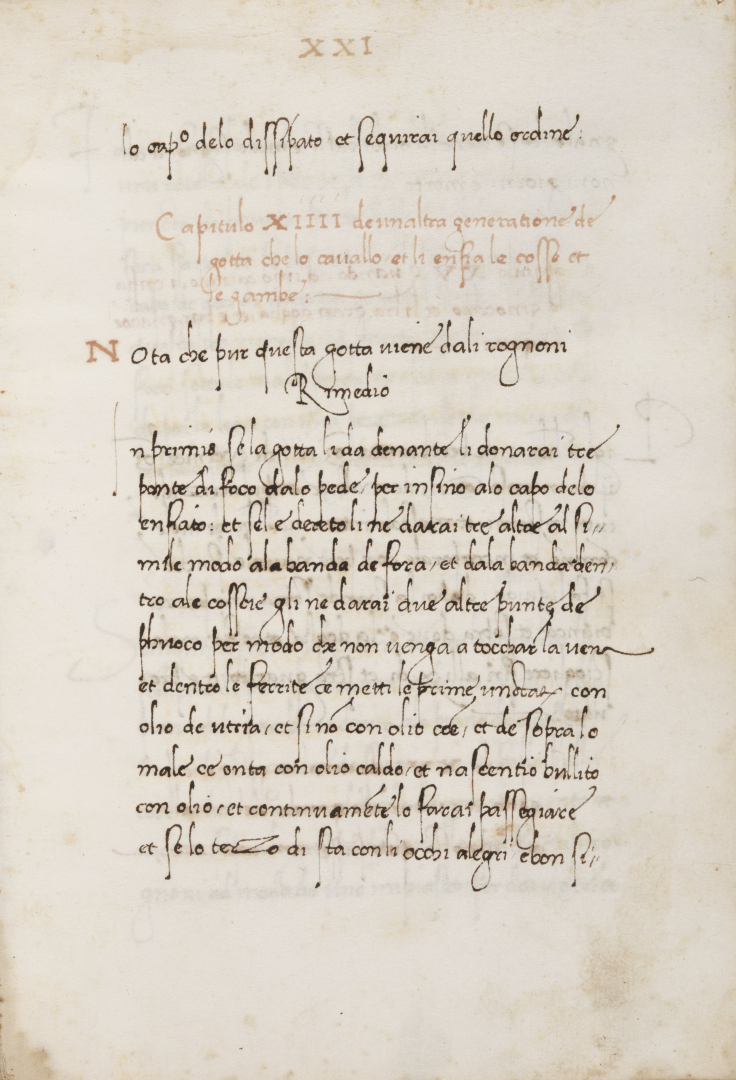 XXI
lo cap° delo dissipato et sequirai quello ordine:
Capitulo XIIII de unaltra generatione de
gotta che lo cauallo et li enfia le cosse et
le gambe:
NOta che pur questa gotta uiene dali rognoni
Rimedio
In primis se la gotta li da denante li donarai tre
ponte di foco dalo pede, per insino alo capo delo
enfiato: et sel e dereto li ne darai tre altre al si//
mile modo ala banda de fora, et dala banda den/
tro ale cosscie gli ne darai due altre punte de
phuoco per modo che non uenga a tocchar la uena
et dentro le ferrite ce metti le prime con
olio de, et sinó con olio coé, et de sopra lo
male ce onta con olio caldo, et nascentio bullito
con olio, et continuaméte lo farai passegiare
et se lo terzo di sta con li occhi alegri e bon si//